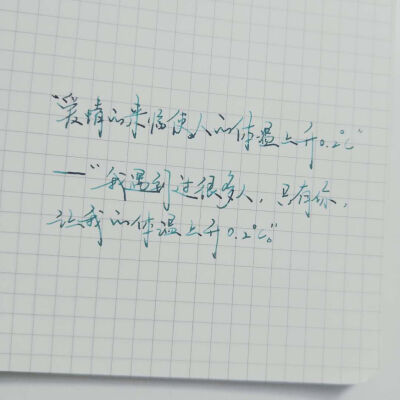 "爱情的来临使人的体温上升0.2℃"
—"我遇到过很多人,只有你,
让我的体温上升0.2℃。"